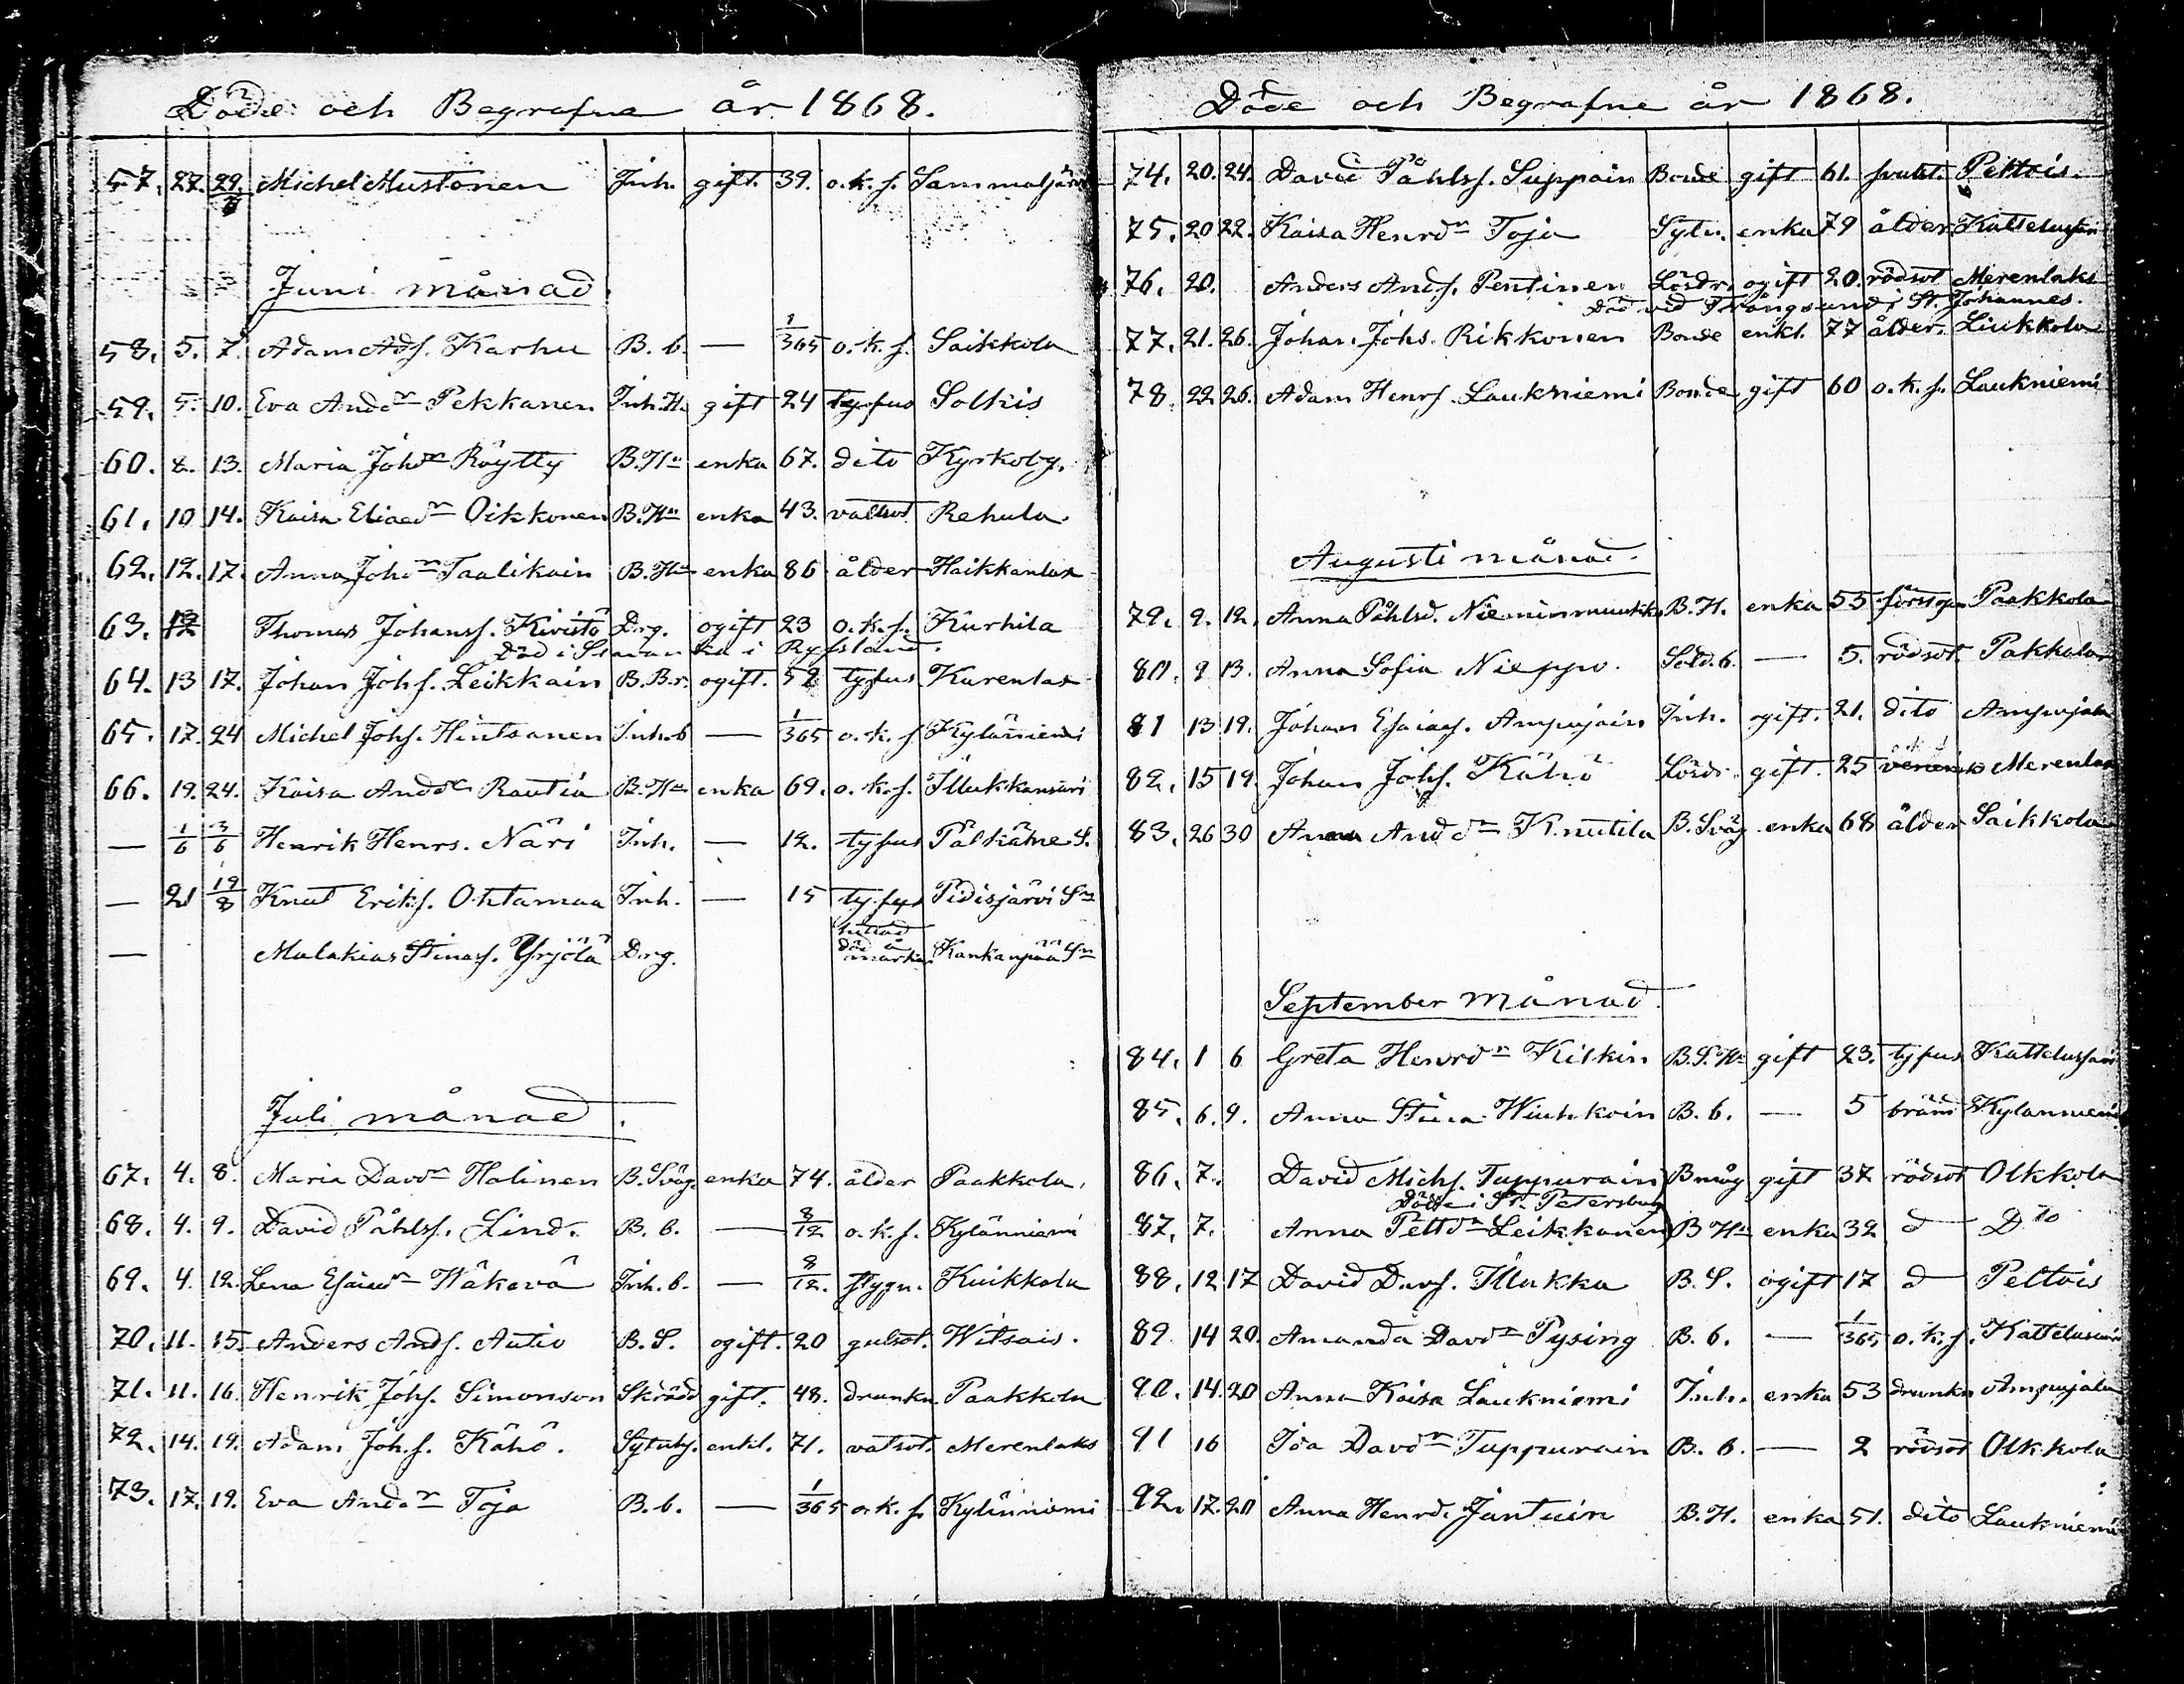 Döde och Begrafne år 1868.
57. 27. 29. Michel Mustonen Inh. gift. 39. o.k.s. Sammaljärvi
Juni månad.
58. 5. 7. Adam Ads. Karhu B.b. — 1/365 o.k.s. Saikkola
59. 5. 10. Eva Andd:r Pekkanen Inh.H. gift 24 tyfus Solkis
60. 8. 13. Maria Johd:r Röytty B.H:a enka 67. dito Kyrkoby.
61. 10 14. Kaisa Eliaed:r Oikkonen B.H:a enka 43. vattsot Rehula
62. 12. 17. Anna Johd:r Taalikain B.H:a enka 86 ålder Haikkanlax
63. Thomas Johanss. Kivistö Drg. ogift 23 o.k.s. Kurhila
Död i i Ryssland.
64. 13 17. Johan Johs. Leikkain B.Br. ogift. 52 tyfus Karenlax
65. 17. 24 Michel Johs. Hintsanen Inh.b — 1/365 o.k.s. Kylänniemi
66. 19. 24. Kaisa Andd:r Rautia B.H:a enka 69. o.k.s. Illukkansaari
— 1/6 3/6 Henrik Henrs. Näri Inh. — 12. tyfus Pälkäne S.
— 21 19/8 Knut Eriks. Ohtamaa Inh. — 15 tyfus Pidisjärvi S:n
— Malakias Stinas. Yrjölä Drg. hittad död å marken Kankanpää S:n
Juli månad.
67. 4. 8. Maria Davd:r Halinen B.Svåg. enka 74. ålder Paakkola.
68. 4. 9. David Påhlss. Lind. B.b. — 8/12 o.k.s. Kylänniemi
69. 4. 12. Lena Esaiaed:r Wäkevä Inh.b. — 8/12. Kuikkola
70. 11. 15. Anders Ands. Autio B.S. ogift. 20 gulsot. Witsais.
71. 11. 16. Henrik Johs. Simonson Skrädd gift. 48. drunkn. Paakkola
72. 14. 19. Adam Johs. Kähö. Sytnhj. enkl. 71. vatsot. Merenlaks
73. 17. 19. Eva Andd:r Toja B.b. — 1/365 o.k.s. Kylänniemi
Döde och Begrafne år 1868.
74. 20. 24. David Påhlss. Suppoin Bonde gift 61. Peltois.
75. 20 22. Kaisa Henrd:r Toja Sytn. enka 79 ålder Kattelussaari
76. 20. Anders Ands. Pentinen Lösdr. ogift 20. rödsot Merenlaks
Död vid Trångsund i St. Johannes.
77. 21. 26. Johan Johs. Rikkonen Bonde enkl. 77 ålder. Liukkola
78. 22 26. Adam Henrs. Laukniemi Bonde gift 60 o.k.s. Laukniemi
Augusti månad.
79. 9. 12. Anna Påhlsd. Nieminmuukko B.H. enka 53 Paakkola
80. 9 13. Anna Sofia Nieppo. Sold.b. — 5. rödsot. Pakkola
81 13 19. Johan Esaias. Ampujain Inh. ogift. 21. dito Ampujala
82. 15 19. Johan Johs. Kähö Lösdr. gift. 25 o.k.s. Merenlax
83. 26 30 Anna Andd:r Knutila B.Svåg enka 68 ålder Saikkola
September månad.
84. 1 6 Greta Henrd:r Kiskin B.S.H:a gift 23. tyfus Kattelussaari
85. 6. 9. Anna Stina Wiuhkoin B.b. — 5 bränd Kylänniemi
86. 7. David Michs. Tappurain Bmåg gift 37 rödsot Olkkola
Döde i St. Petersburg
87. 7. Anna Petd:r Leikkanen B H:a enka 32 d D:to
88. 12 17 David Davs. Illukka B.S. ogift 17 d Peltois
89 14 20. Amanda Davd:r Pysing B.b. — 1/365 o.k.s. Kattelusaari
90. 14. 20 Anna Kaisa Laukniemi Inh. enka 53 drunkn Ampujala
91 16 Ida Davd:r Tappurain B.b. — 2 rödsot Olkkola
92. 17. 20 Anna Henrd. Jantuin B.H. enka 51. dito Laukniemi